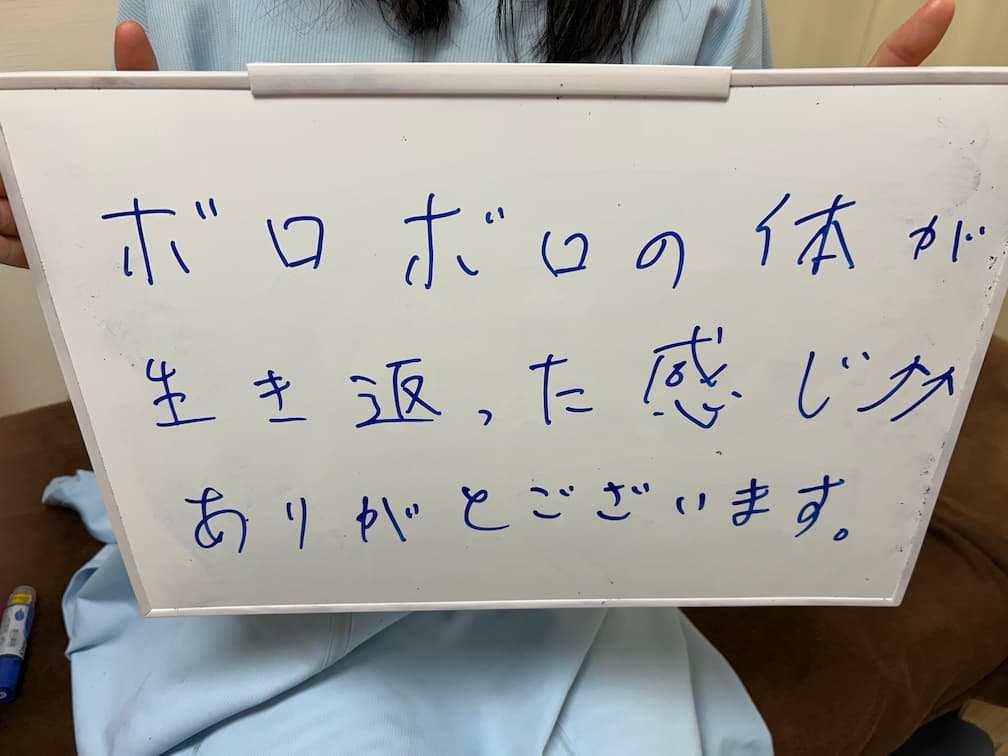 ボロボロの体が
生き返った感じ↗↗
ありがとございます。